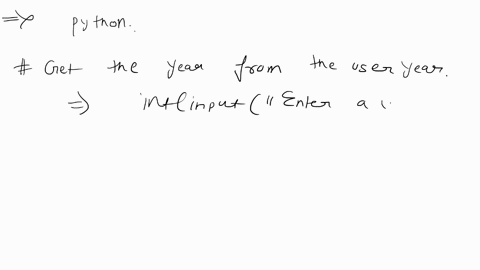 => python.
# Get the year from the user year.
=> int(input("Enter a